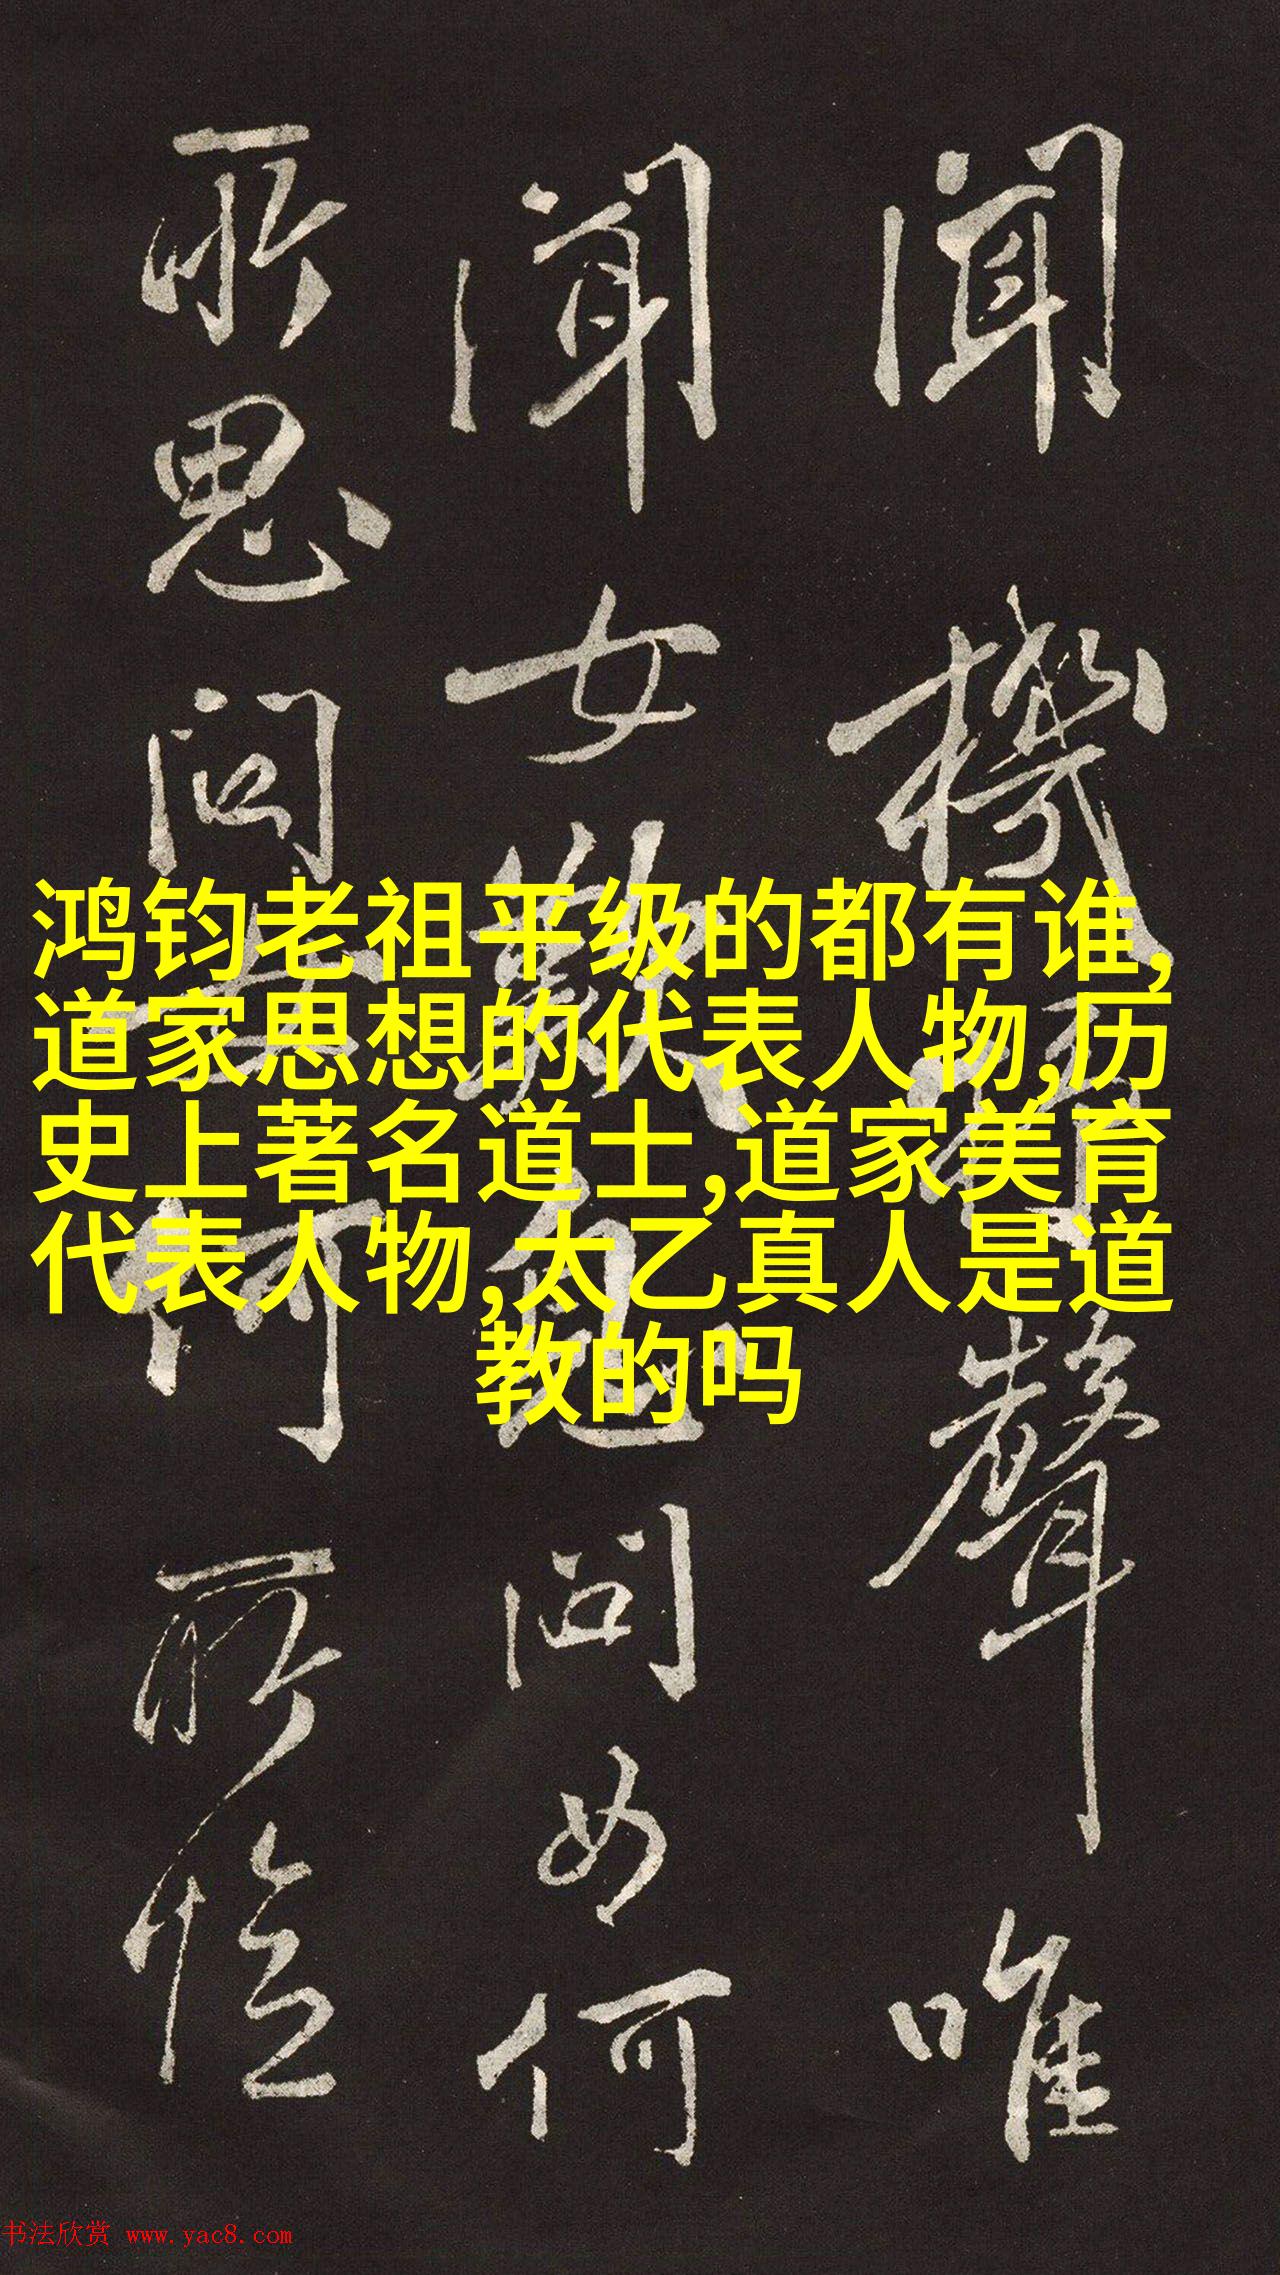 鸿钧老祖平级的都有谁,
道家思想的代表人物,历
史上著名道士,道家美育
代表人物,太乙真人是道
教的吗
聞機聲唯
聞女歎息問女何
所思問女何所憶
书法欣赏 www.yac8.com